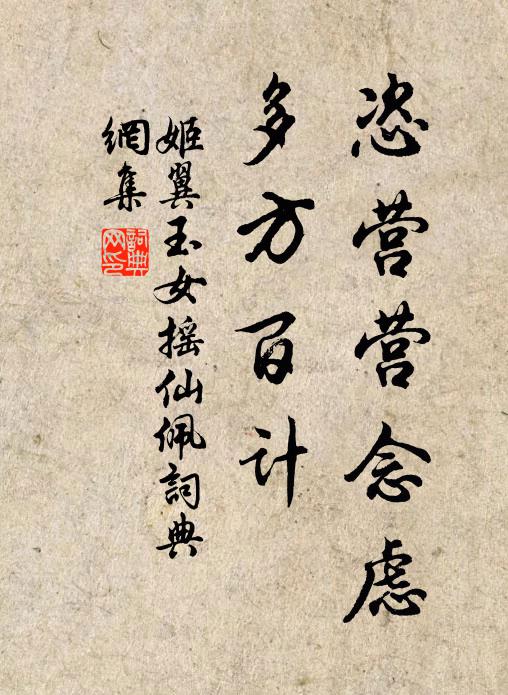 恣营营念虑
多方百计
姬翼玉女摇仙佩詞典
網集
詞典
网印